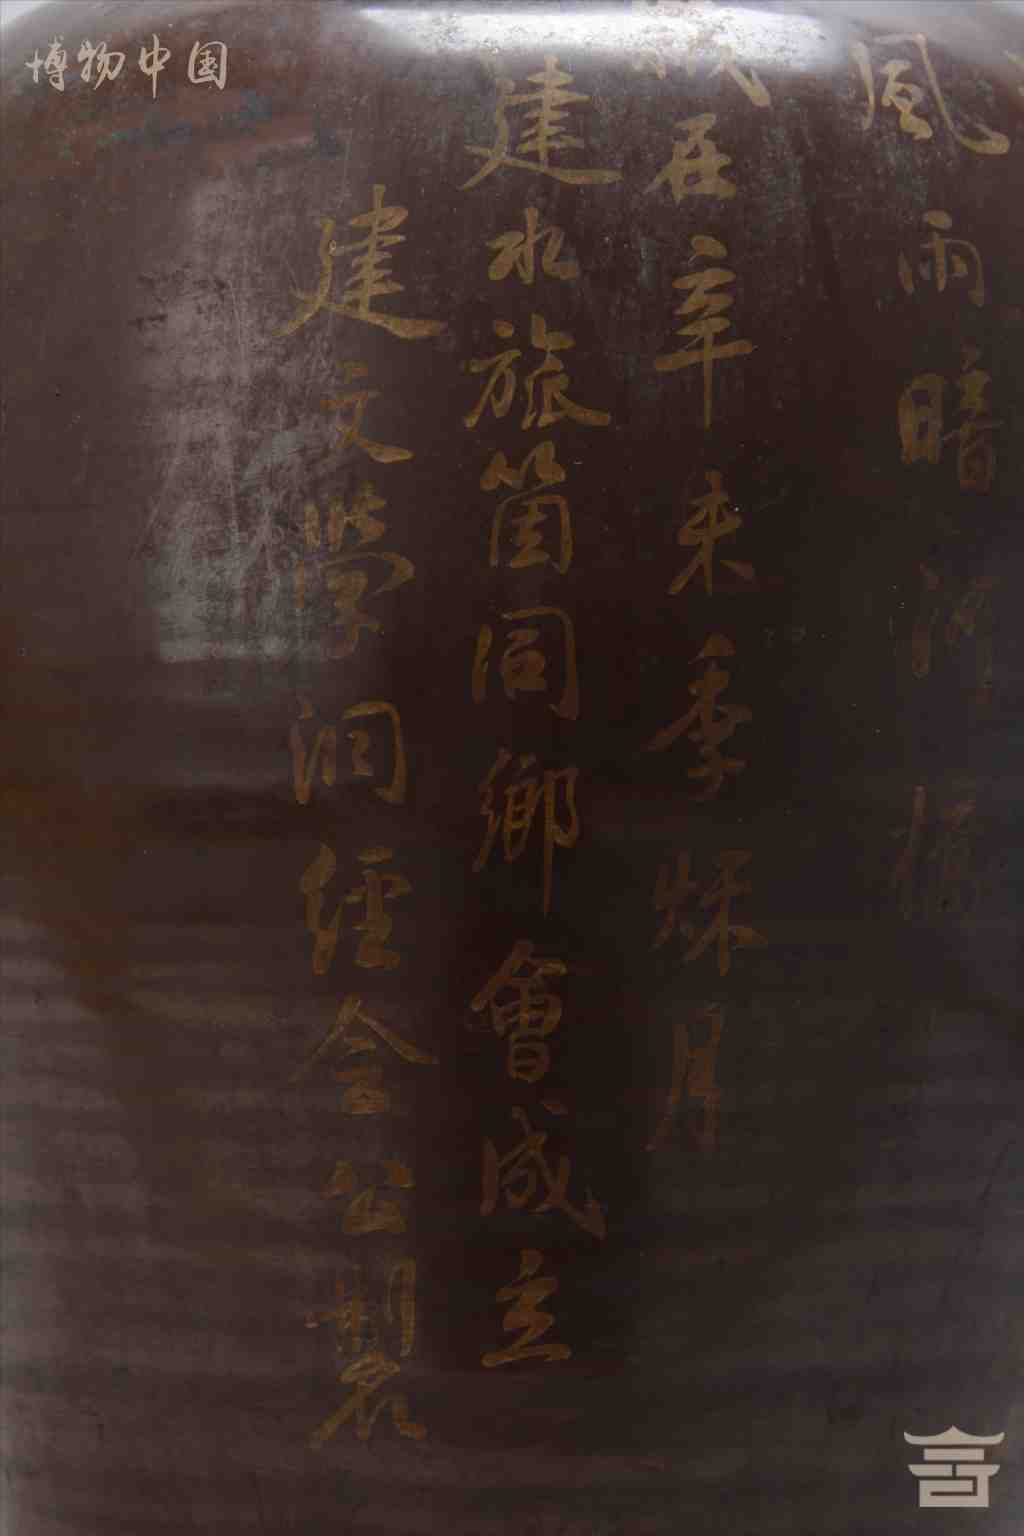 博物中国
風雨暗河橋
歲在辛未季秌月
建水旅箇同鄉會成立
建文學洞經会公製